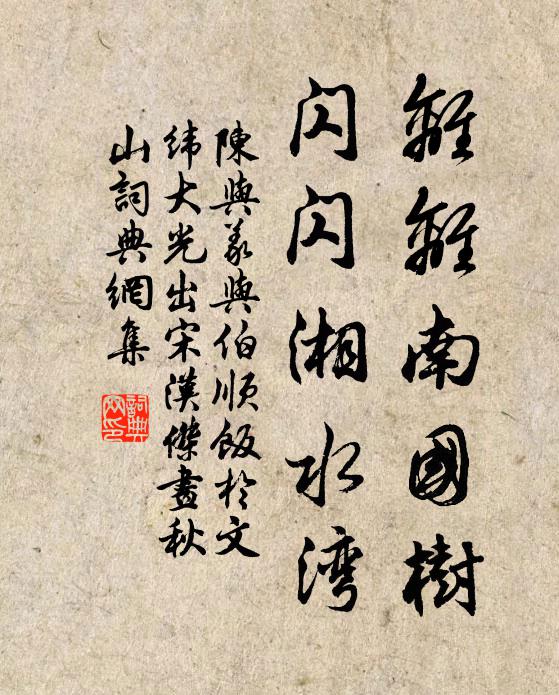 離離南國樹
閃閃湘水灣
陳與義與伯順飯於文
緯大光出宋漢傑畫秋
山詞典網集
詞典
网印